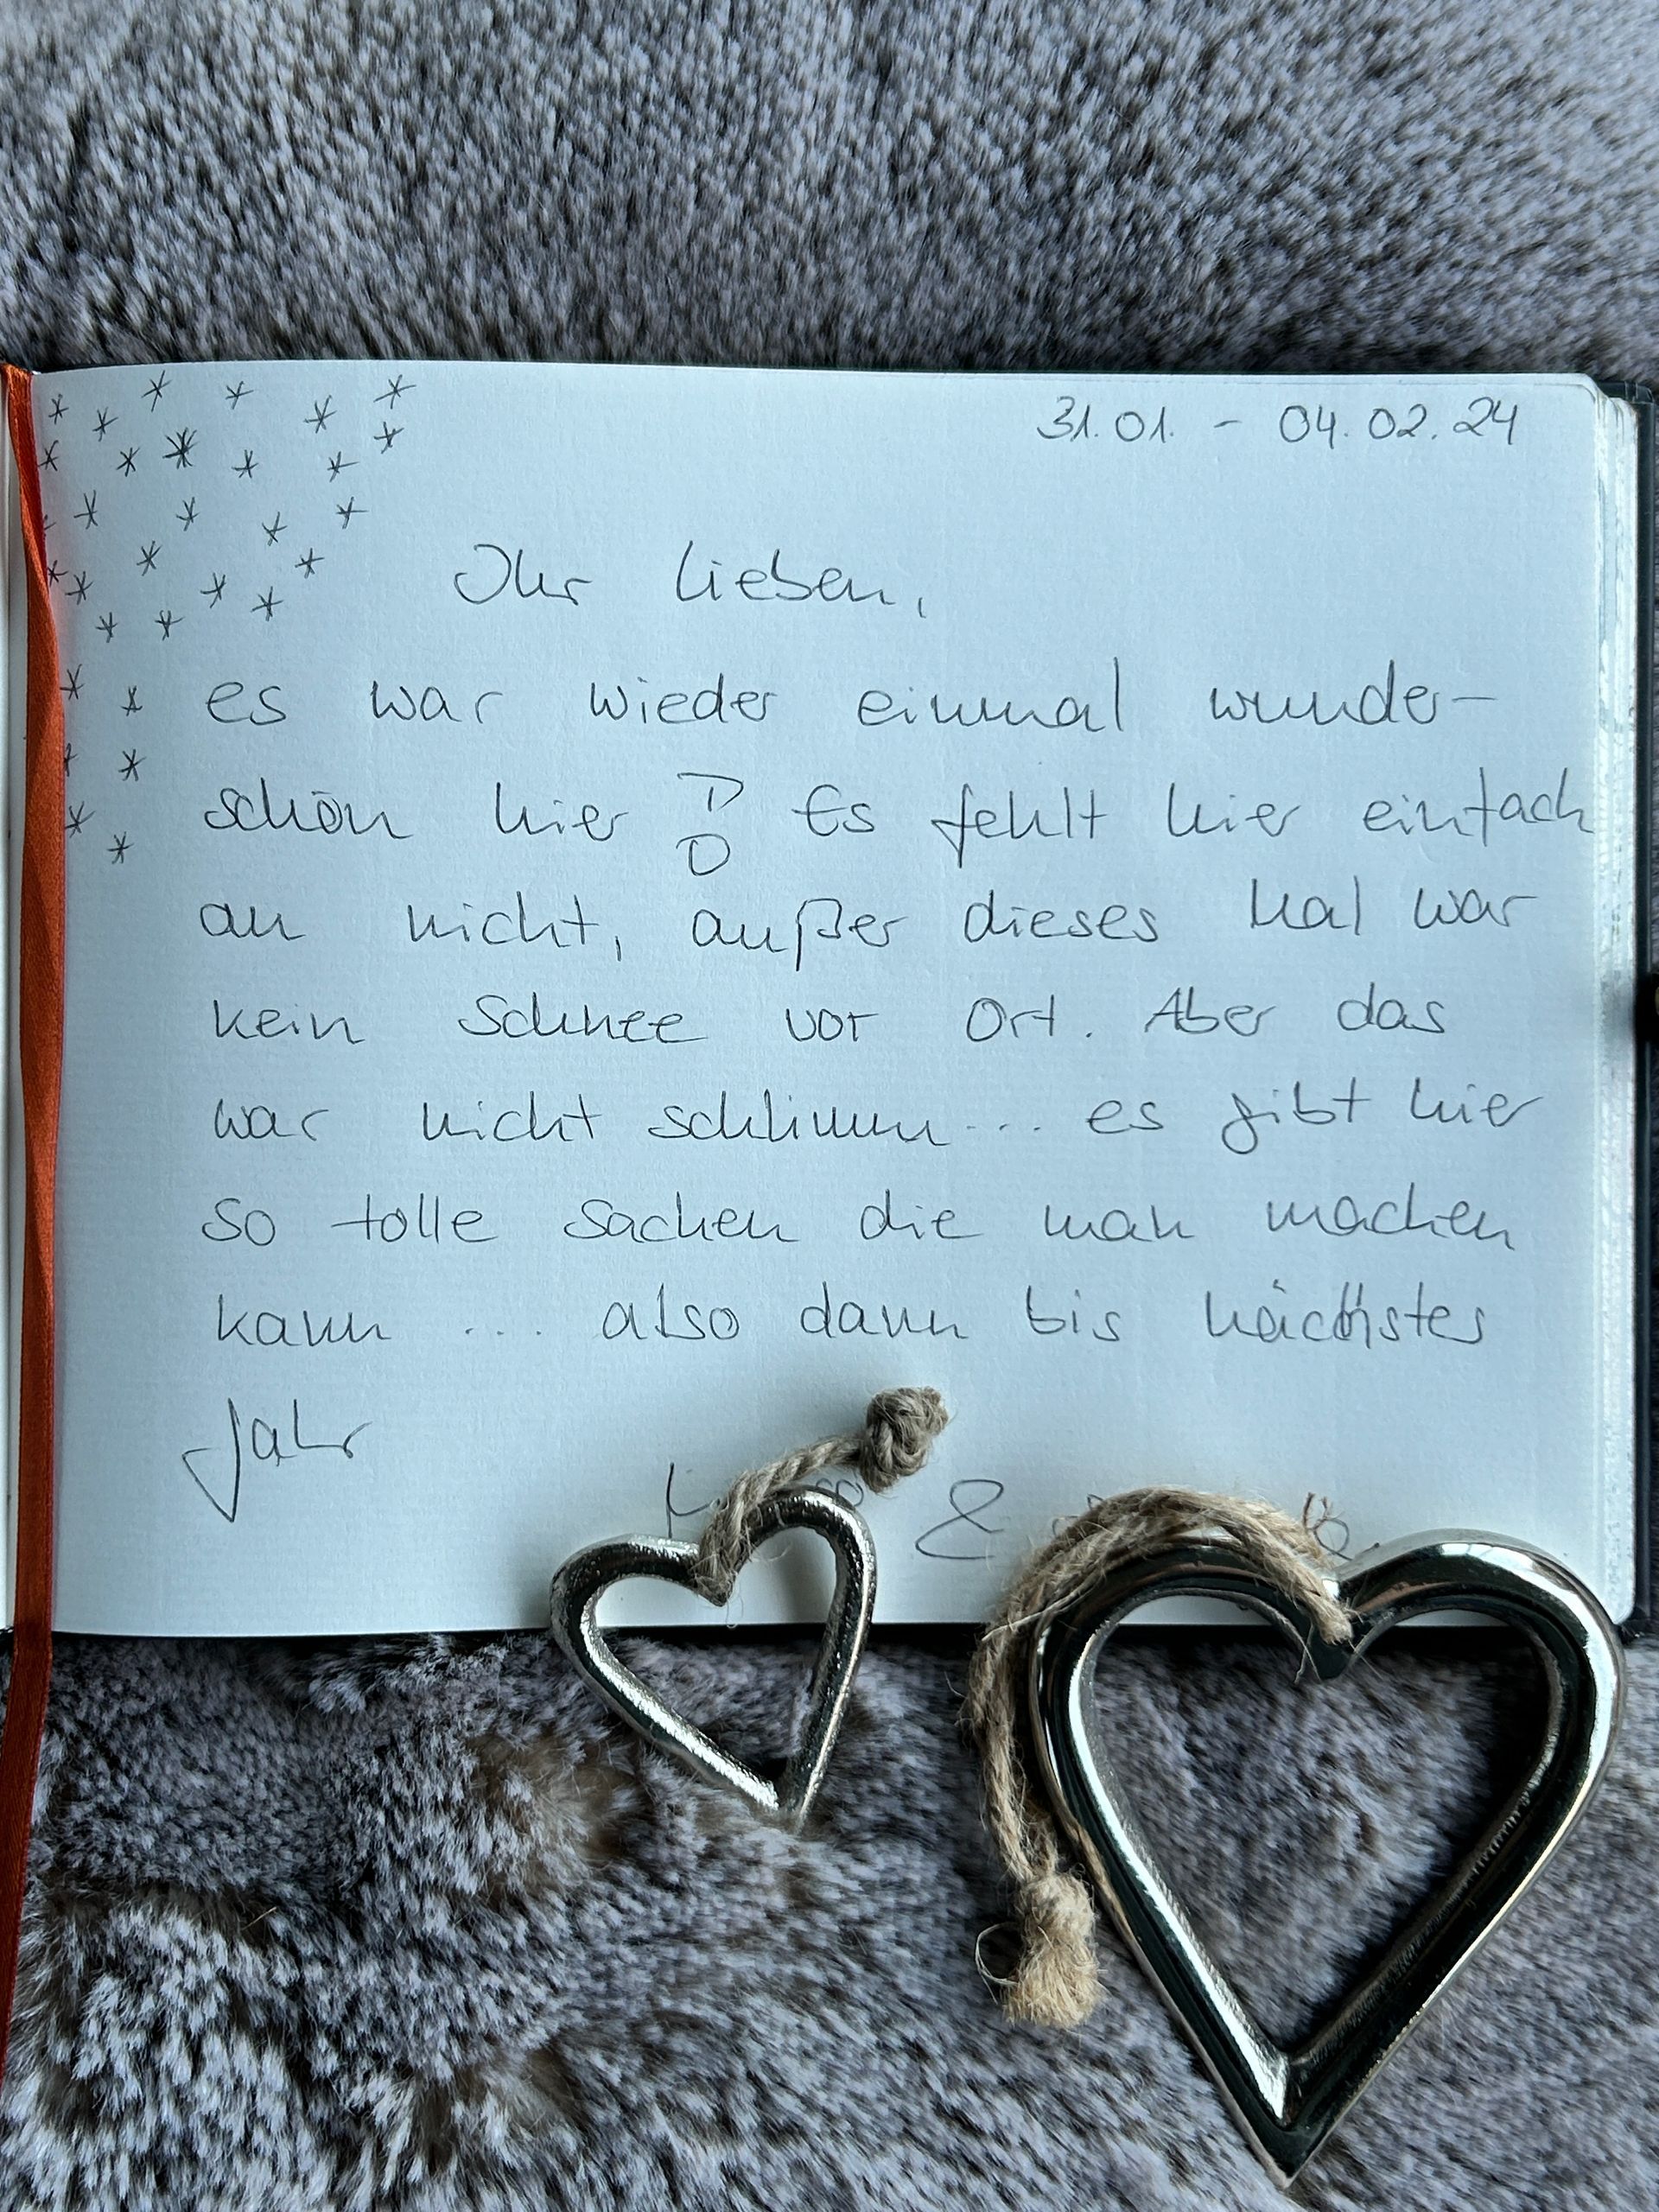 31.01. - 04.02.24
Ihr Lieben,
es war wieder einmal wunder-
schön hier ! Es fehlt hier einfach
an nicht, außer dieses Mal war
kein Schnee vor Ort. Aber das
war nicht schlimm... es gibt hier
so tolle Sachen die man machen
kann ... also dann bis nächstes
Jahr
&